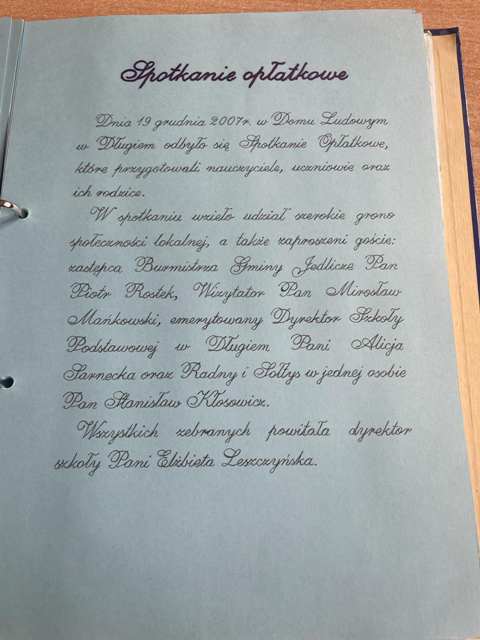 Spotkanie opłatkowe
Dnia 19 grudnia 2007r. w Domu Ludowym
w Długiem odbyło się Spotkanie Opłatkowe,
które przygotowali nauczyciele, uczniowie oraz
ich rodzice.
W spotkaniu wzięło udział szerokie grono
społeczności lokalnej, a także zaproszeni goście:
zastępca Burmistrza Gminy Jedlicze Pan
Piotr Rostek, Wizytator Pan Mirosław
Mańkowski, emerytowany Dyrektor Szkoły
Podstawowej w Długiem Pani Alicja
Sarnecka oraz Radny i Sołtys w jednej osobie
Pan Stanisław Kłosowicz.
Wszystkich zebranych powitała dyrektor
szkoły Pani Elżbieta Leszczyńska.